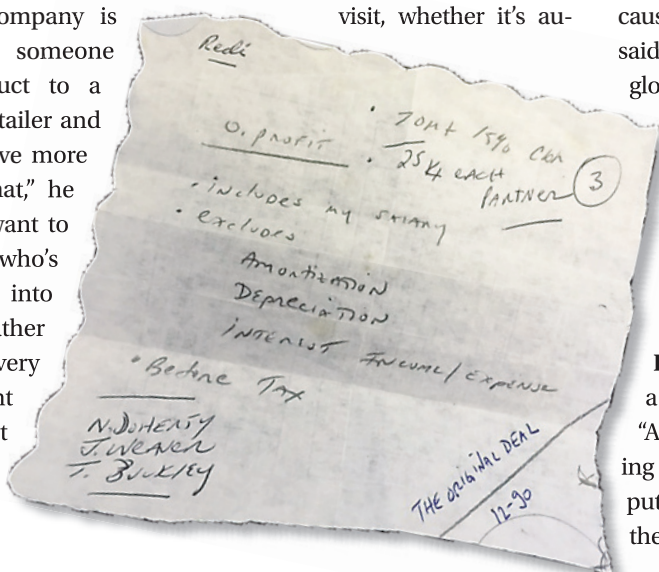 ompany is
someone
uct to a
tailer and
ve more
hat," he
vant to
who's
into
ther
very
nt
t
visit, whether it's au-
caus
said
glo
a
"A
ing
put
the
Redi
O. PROFIT
• 15%
• 25K EACH
PARTNER 3
• includes my salary
• excludes
Amortization
Depreciation
INTEREST INCOME/EXPENSE
• Before Tax
N. DOHERTY
J. WEAVER
T. BUCKLEY
THE ORIGINAL DEAL
12-90